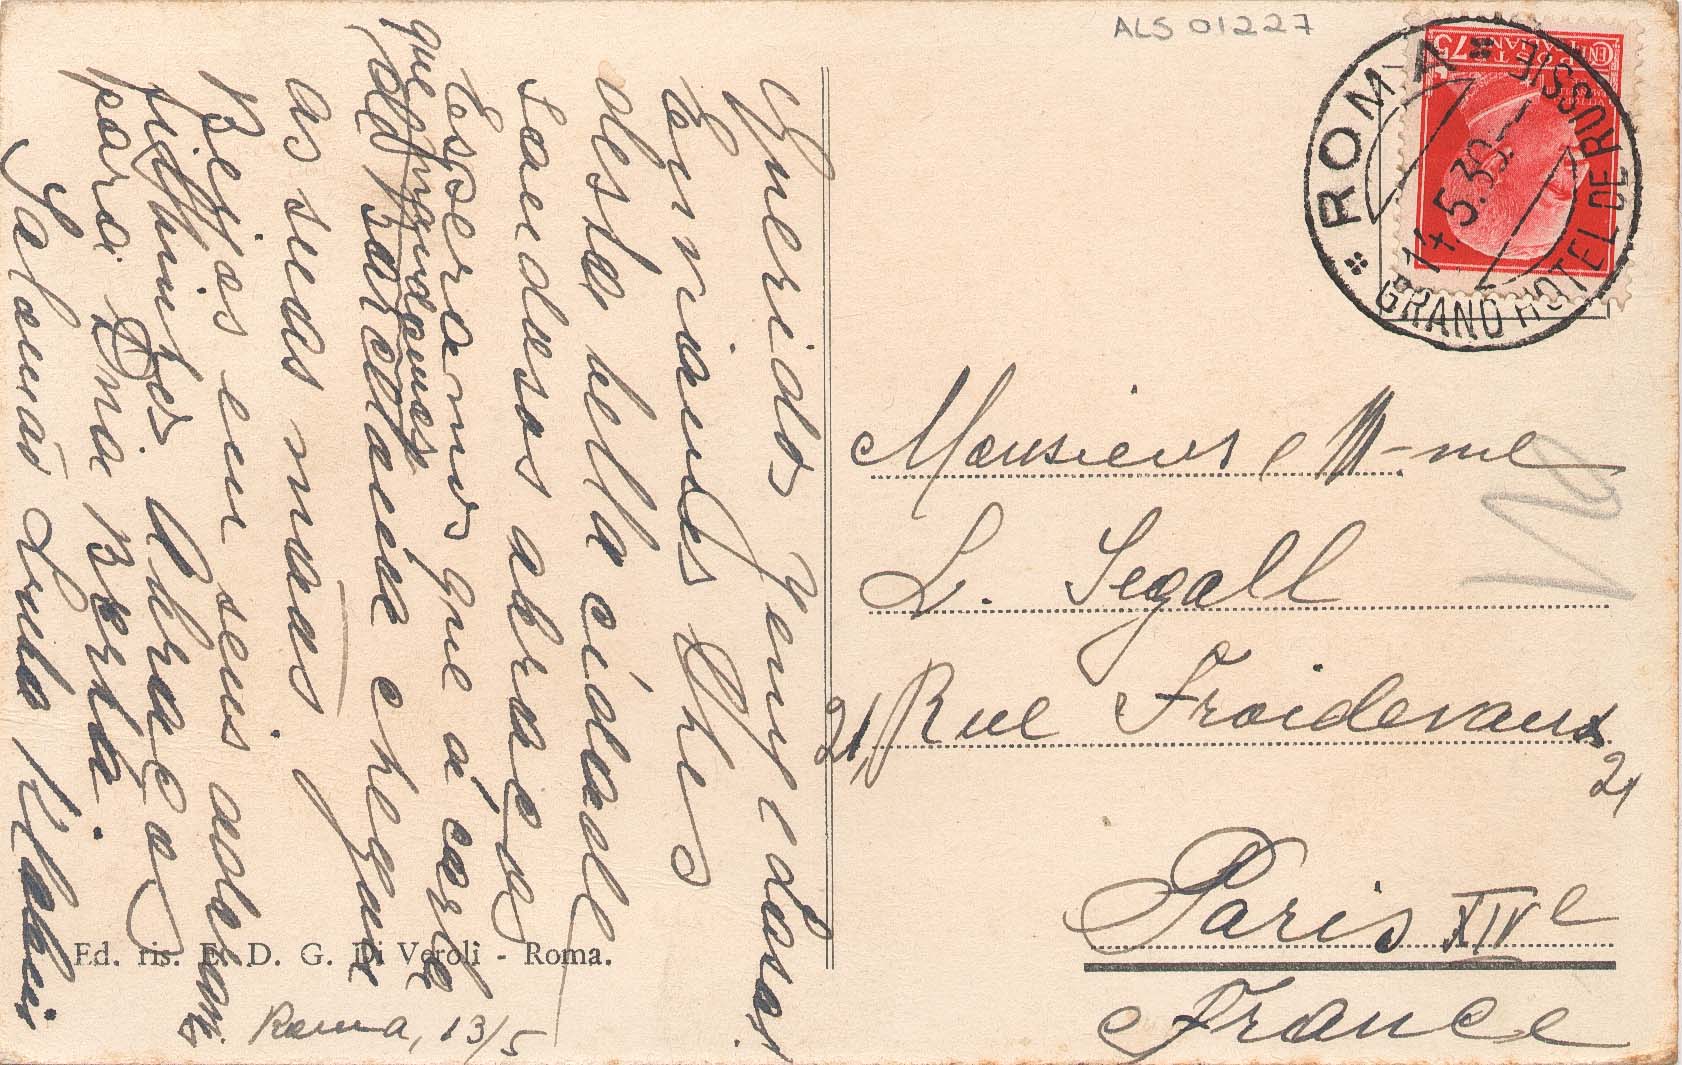 ALS 01227
ROMA
GRAND HOTEL DE RUSSIE
14.5.32
CENT 75
Querido Jenny e Lasar
Enviamos lhes
desta bella cidade
saudosos abraços
Esperamos que á carta
que mandamos
de Barcelona chegue
as suas mãos
Beijos em seus adoraveis
filhinhos Abraços
para Dna Berta
Salomão Luba Klabin
Ed. ris. E. D. G. Di Veroli - Roma.
Roma, 13/5
Monsieur e M-me
L. Segall
21, Rue Froidevaux
21
Paris XIVe
France